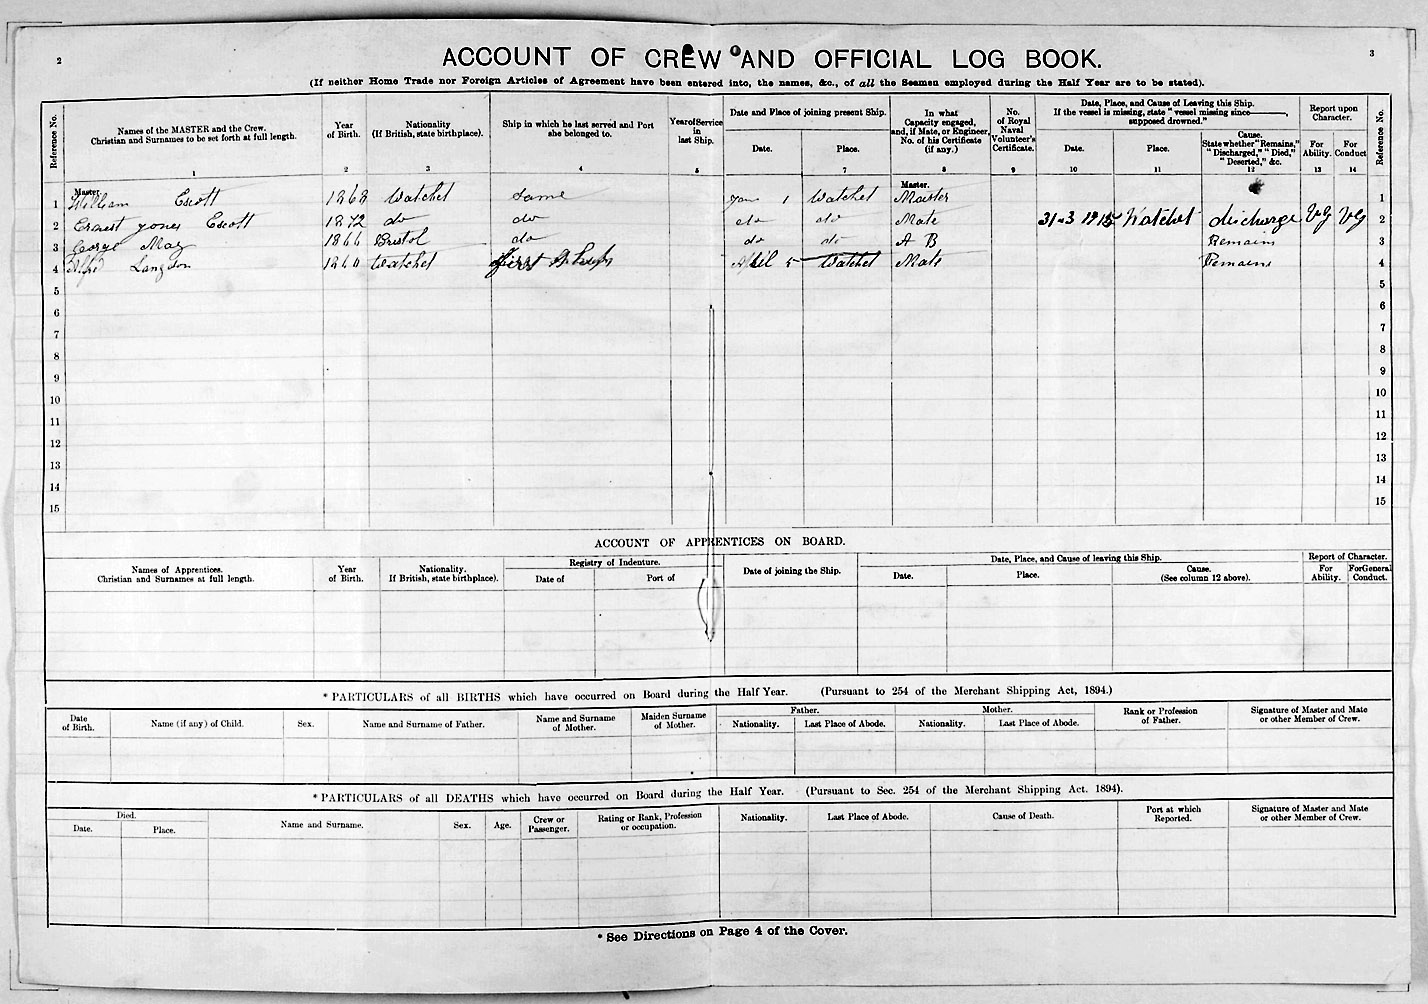 2
3
ACCOUNT OF CREW AND OFFICIAL LOG BOOK.
(If neither Home Trade nor Foreign Articles of Agreement have been entered into, the names, &c., of all the Seamen employed during the Half Year are to be stated).
Reference No.
Names of the MASTER and the Crew.
Christian and Surnames to be set forth at full length.
1
Year
of Birth.
2
Nationality
(If British, state birthplace).
3
Ship in which he last served and Port
she belonged to.
4
Year of Service
in
last Ship.
5
Date and Place of joining present Ship.
Date.
Place.
7
In what
Capacity engaged,
and, if Mate, or Engineer,
No. of his Certificate
(if any.)
8
No.
of Royal
Naval
Volunteer's
Certificate.
9
Date, Place, and Cause of Leaving this Ship.
If the vessel is missing, state "vessel missing since———,
supposed drowned."
Date.
10
Place.
11
Cause.
State whether "Remains,"
"Discharged," "Died,"
"Deserted," &c.
12
Report upon
Character.
For
Ability.
13
For
Conduct
14
Reference No.
Master.
Master.
1 William Escott 1868 Watchet Same Jan 1 Watchet Master 1
2 Ernest Jones Escott 1872 do do do do Mate 31-3 1915 Watchet discharge VG VG 2
3 George May 1866 Bristol do do do A B Remains 3
4 Alfd Langdon 1860 Watchet first April 5 Watchet Mate Remains 4
5 5
6 6
7 7
8 8
9 9
10 10
11 11
12 12
13 13
14 14
15 15
ACCOUNT OF APPRENTICES ON BOARD.
Names of Apprentices.
Christian and Surnames at full length.
Year
of Birth.
Nationality.
If British, state birthplace).
Registry of Indenture.
Date of
Port of
Date of joining the Ship.
Date, Place, and Cause of leaving this Ship.
Date.
Place.
Cause.
(See column 12 above).
Report of Character.
For
Ability.
For General
Conduct.
* PARTICULARS of all BIRTHS which have occurred on Board during the Half Year. (Pursuant to 254 of the Merchant Shipping Act, 1894.)
Date
of Birth.
Name (if any) of Child.
Sex.
Name and Surname of Father.
Name and Surname
of Mother.
Maiden Surname
of Mother.
Father.
Nationality.
Last Place of Abode.
Mother.
Nationality.
Last Place of Abode.
Rank or Profession
of Father.
Signature of Master and Mate
or other Member of Crew.
* PARTICULARS of all DEATHS which have occurred on Board during the Half Year. (Pursuant to Sec. 254 of the Merchant Shipping Act. 1894).
Died.
Date.
Place.
Name and Surname.
Sex.
Age.
Crew or
Passenger.
Rating or Rank, Profession
or occupation.
Nationality.
Last Place of Abode.
Cause of Death.
Port at which
Reported.
Signature of Master and Mate
or other Member of Crew.
* See Directions on Page 4 of the Cover.